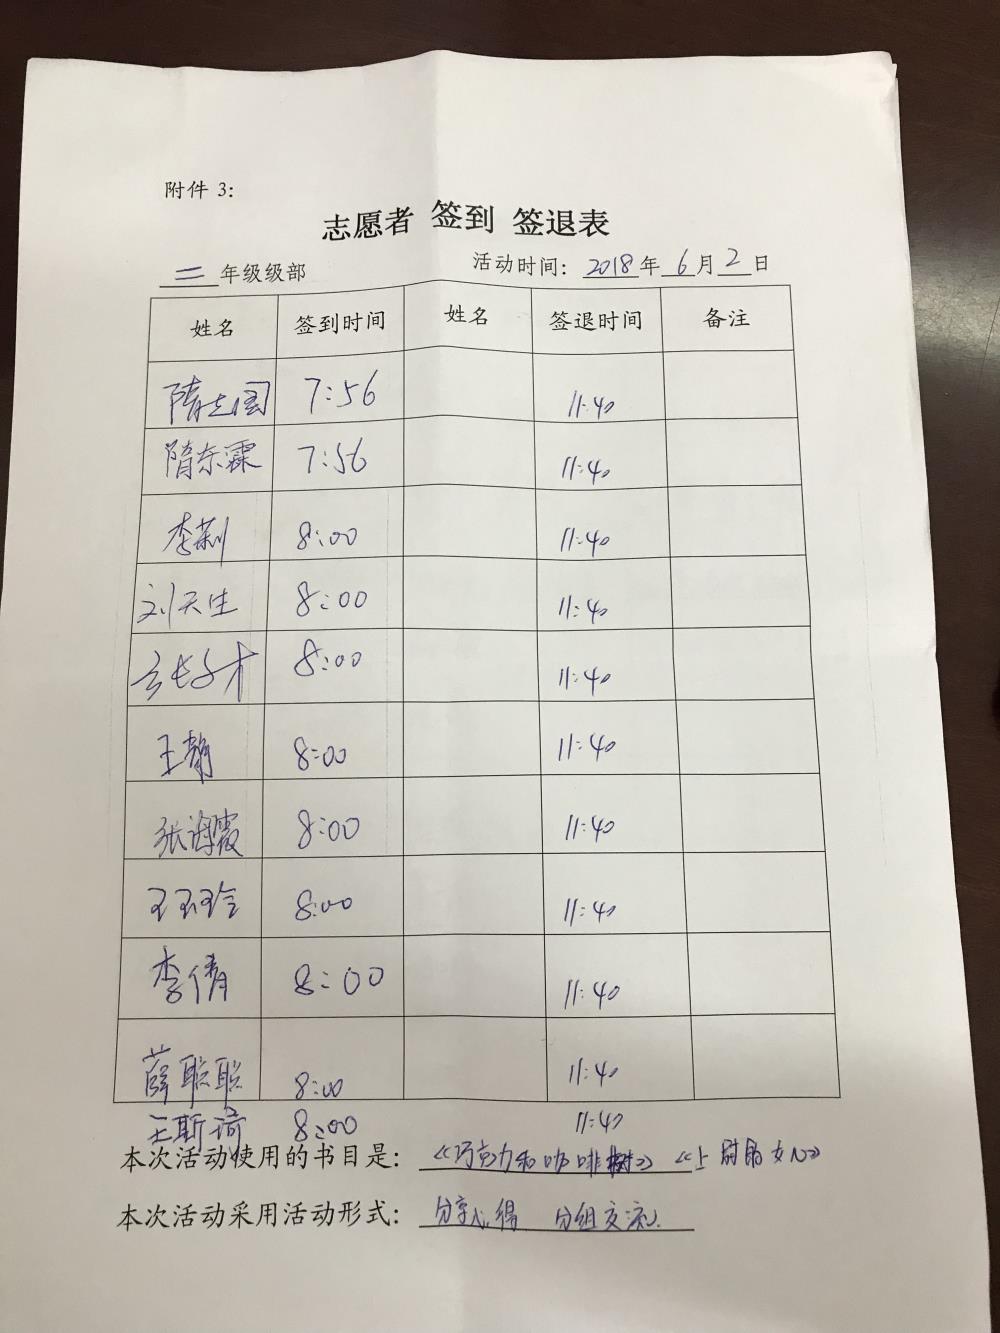 附件 3：
志愿者 签到 签退表
二 年级级部 活动时间：2018 年 6 月 2 日
姓名 签到时间 姓名 签退时间 备注
隋志国 7:56 11:40
隋东霖 7:56 11:40
李莉 8:00 11:40
刘天生 8:00 11:40
8:00 11:40
王静 8:00 11:40
张海霞 8:00 11:40
王玉玲 8:00 11:40
李倩 8:00 11:40
薛聪聪 8:00 11:40
王斯琦 8:00 11:40
本次活动使用的书目是：《巧克力和咖啡树》
本次活动采用活动形式：分享心得 分组交流